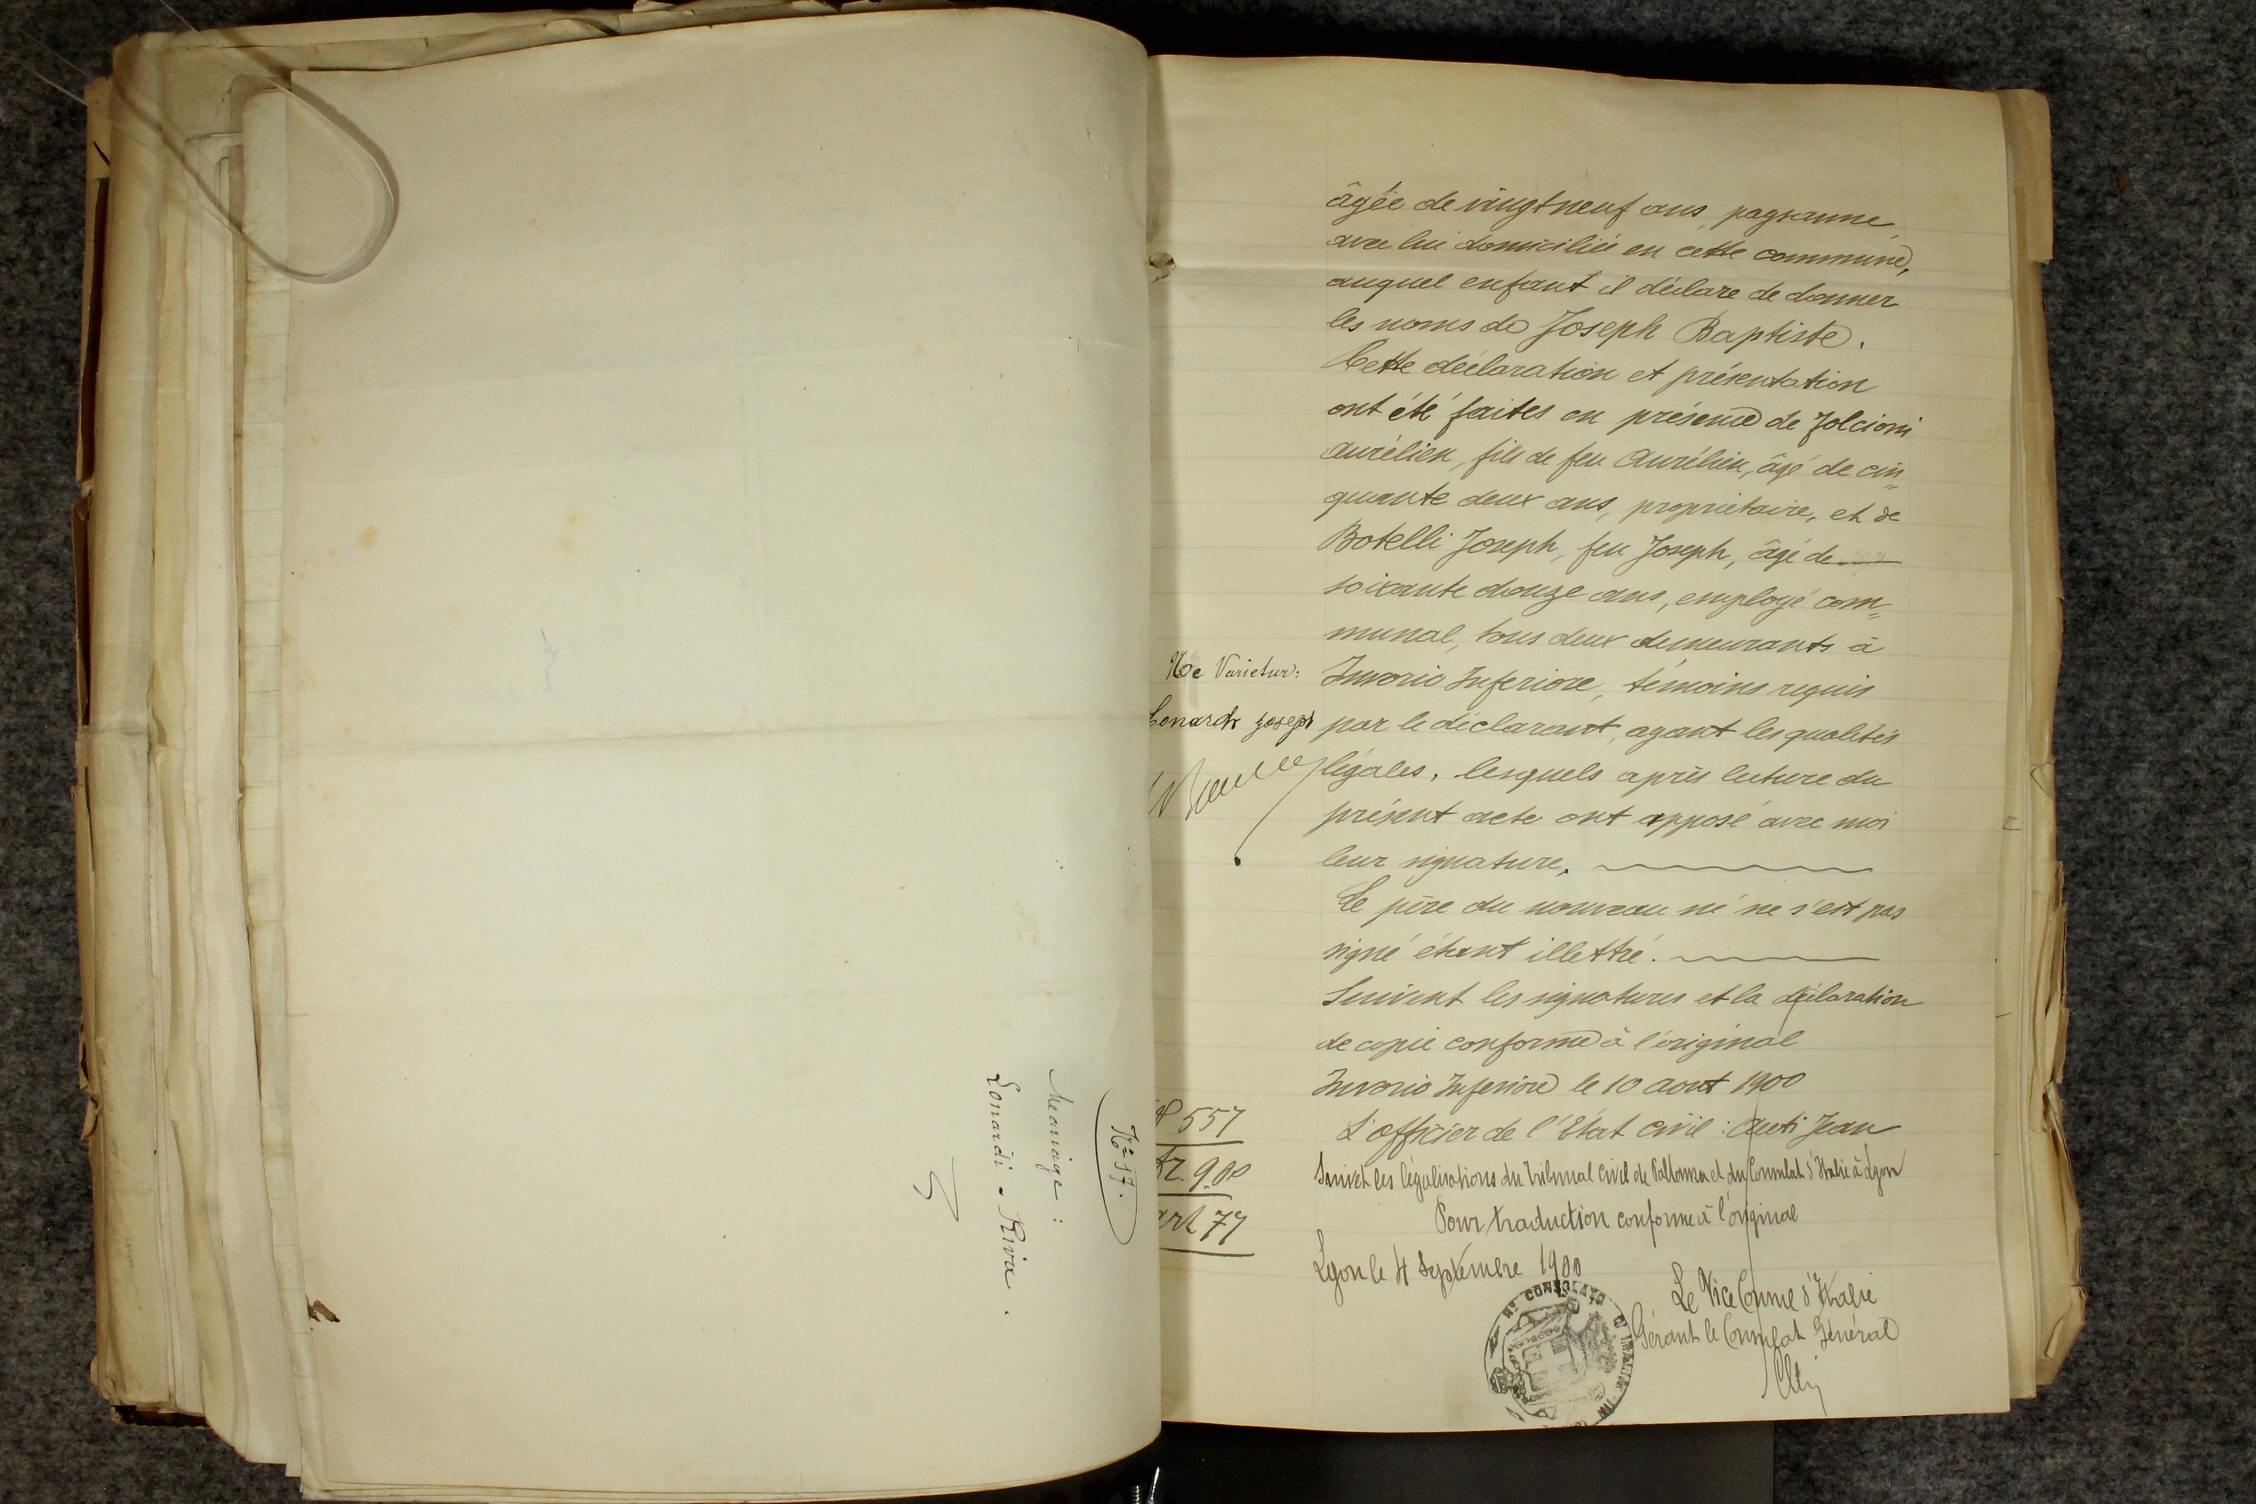 N° 57.
Mariage :
Lonardi - Riva.
âgée de vingt neuf ans, paysanne,
avec lui domiciliée en cette commune,
auquel enfant il déclare de donner
les noms de Joseph Baptiste.
Cette déclaration et présentation
ont été faites en présence de Folcioni
Aurélien, fils de feu Aurélien, âgé de cin=
quante deux ans, propriétaire, et de
Botelli Joseph, feu Joseph, âgé de
soixante douze ans, employé com=
munal, tous deux demeurants à
Invorio Inferiore, témoins requis
par le déclarant, ayant les qualités
légales, lesquels après lecture du
présent acte ont apposé avec moi
leur signature.
Le père du nouveau né ne s'est pas
signé étant illettré.
Suivent les signatures et la déclaration
de copie conforme à l'original
Invorio Inferiore le 10 Aout 1900
L'officier de l'Etat civil : Auti Jean
Suivent les légalisations du Tribunal Civil de Pallanza et du Consulat d'Italie à Lyon
Pour traduction conforme à l'original
Lyon le 4 Septembre 1900
Le Vice Consul d'Italie
Gérant le Consulat Général
Ne Varietur:
Lonardi Joseph
557
fr. 9.00
art 77
R° CONSOLATO D'ITALIA IN